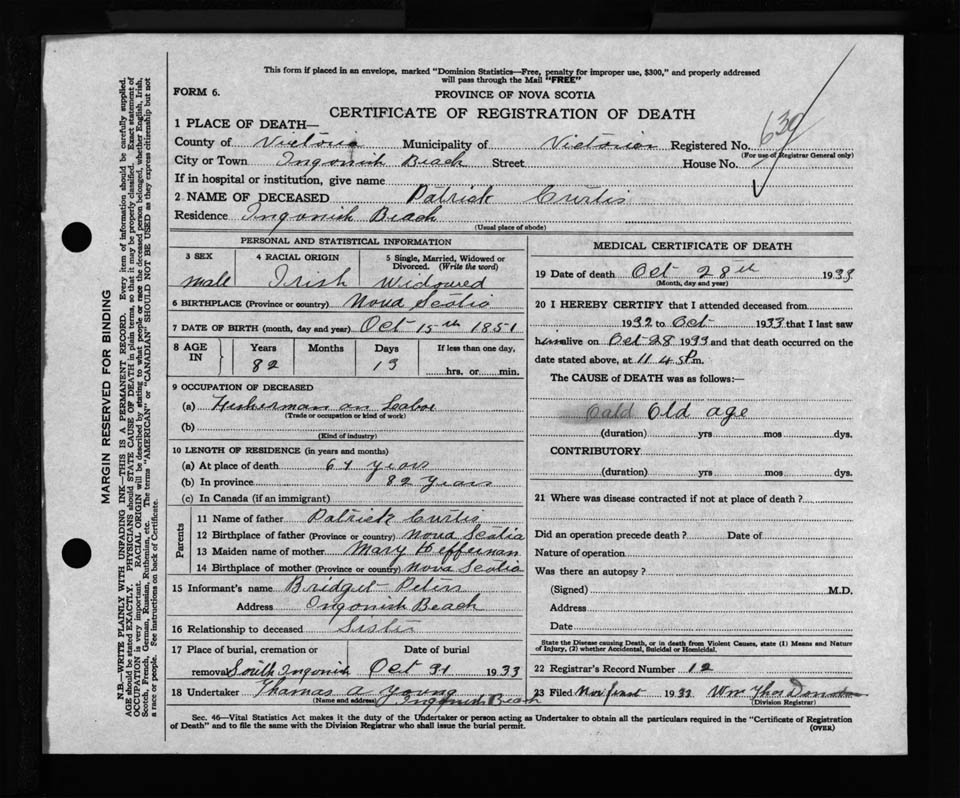 This form if placed in an envelope, marked "Dominion Statistics—Free, penalty for improper use, $300," and properly addressed
will pass through the Mail "FREE"
FORM 6.
PROVINCE OF NOVA SCOTIA
CERTIFICATE OF REGISTRATION OF DEATH
639
1 PLACE OF DEATH—
County of Victoria Municipality of Victoria Registered No.
(For use of Registrar General only)
City or Town Ingonish Beach Street House No.
If in hospital or institution, give name
2 NAME OF DECEASED Patrick Curtis
Residence Ingonish Beach
(Usual place of abode)
PERSONAL AND STATISTICAL INFORMATION
3 SEX 4 RACIAL ORIGIN 5 Single, Married, Widowed or Divorced. (Write the word)
Male Irish Widowed
6 BIRTHPLACE (Province or country) Nova Scotia
7 DATE OF BIRTH (month, day and year) Oct 15th 1851
8 AGE IN Years Months Days If less than one day,
82 13 hrs. or min.
9 OCCUPATION OF DECEASED
(a) Fisherman an
(Trade or occupation or kind of work)
(b)
(Kind of industry)
10 LENGTH OF RESIDENCE (in years and months)
(a) At place of death years
(b) In province 82 years
(c) In Canada (if an immigrant)
Parents
11 Name of father Patrick Curtis
12 Birthplace of father (Province or country) Nova Scotia
13 Maiden name of mother Mary Heffernan
14 Birthplace of mother (Province or country) Nova Scotia
15 Informant's name Bridget
Address Ingonish Beach
16 Relationship to deceased Sister
17 Place of burial, cremation or Date of burial
removal South Ingonish Oct 31 1933
18 Undertaker Thomas A Young
(Name and address) Ingonish Beach
MEDICAL CERTIFICATE OF DEATH
19 Date of death Oct 28th 1933
(Month, day and year)
20 I HEREBY CERTIFY that I attended deceased from
1932 to Oct 1933 that I last saw
him alive on Oct 28 1933 and that death occurred on the
date stated above, at 11 45 P m.
The CAUSE of DEATH was as follows:—
Old age
(duration) yrs mos dys.
CONTRIBUTORY
(duration) yrs mos dys.
21 Where was disease contracted if not at place of death?
Did an operation precede death? Date of
Nature of operation
Was there an autopsy?
(Signed) M.D.
Address
Date
State the Disease causing Death, or in death from Violent Causes, state (1) Means and Nature
of Injury, (2) whether Accidental, Suicidal or Homicidal.
22 Registrar's Record Number 12
23 Filed Nov first 1933 Wm Thos
(Division Registrar)
Sec. 46—Vital Statistics Act makes it the duty of the Undertaker or person acting as Undertaker to obtain all the particulars required in the "Certificate of Registration
of Death" and to file the same with the Division Registrar who shall issue the burial permit. (OVER)
MARGIN RESERVED FOR BINDING
N.B.—WRITE PLAINLY WITH UNFADING INK—THIS IS A PERMANENT RECORD. Every item of information should be carefully supplied.
AGE should be stated EXACTLY. PHYSICIANS should STATE CAUSE OF DEATH in plain terms, so that it may be properly classified. Exact statement of
OCCUPATION is very important. RACIAL ORIGIN will be described by stating to what people or race the deceased person belonged, whether English, Irish,
Scotch, French, German, Russian, Ruthenian, etc. The terms "AMERICAN" or "CANADIAN" SHOULD NOT BE USED as they express citizenship but not
a race or people. See instructions on back of Certificate.